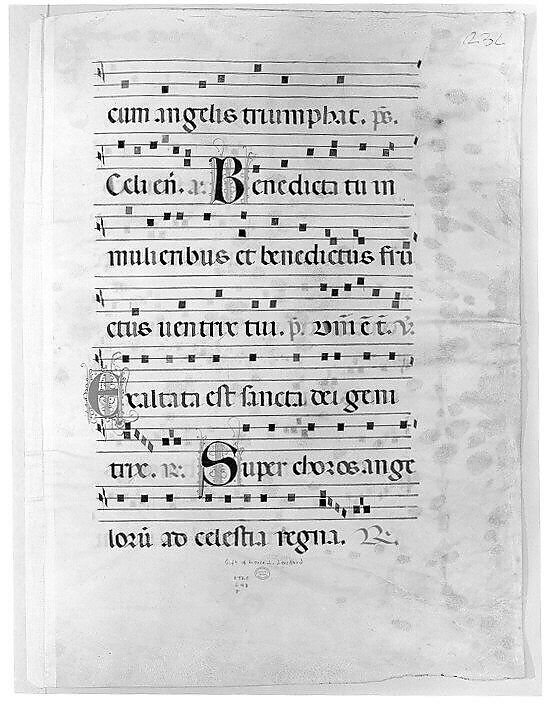 cum angelis triumphat. ps̄.
Celi en̄. a: Benedicta tu in
mulieribus et benedictus frū
ctus uentrix tui. p̄. Dn̄i ē t̄. V.
Exaltata est sancta dei geni
trix. R: Super choros ange
lorū ad celestia regna. R: